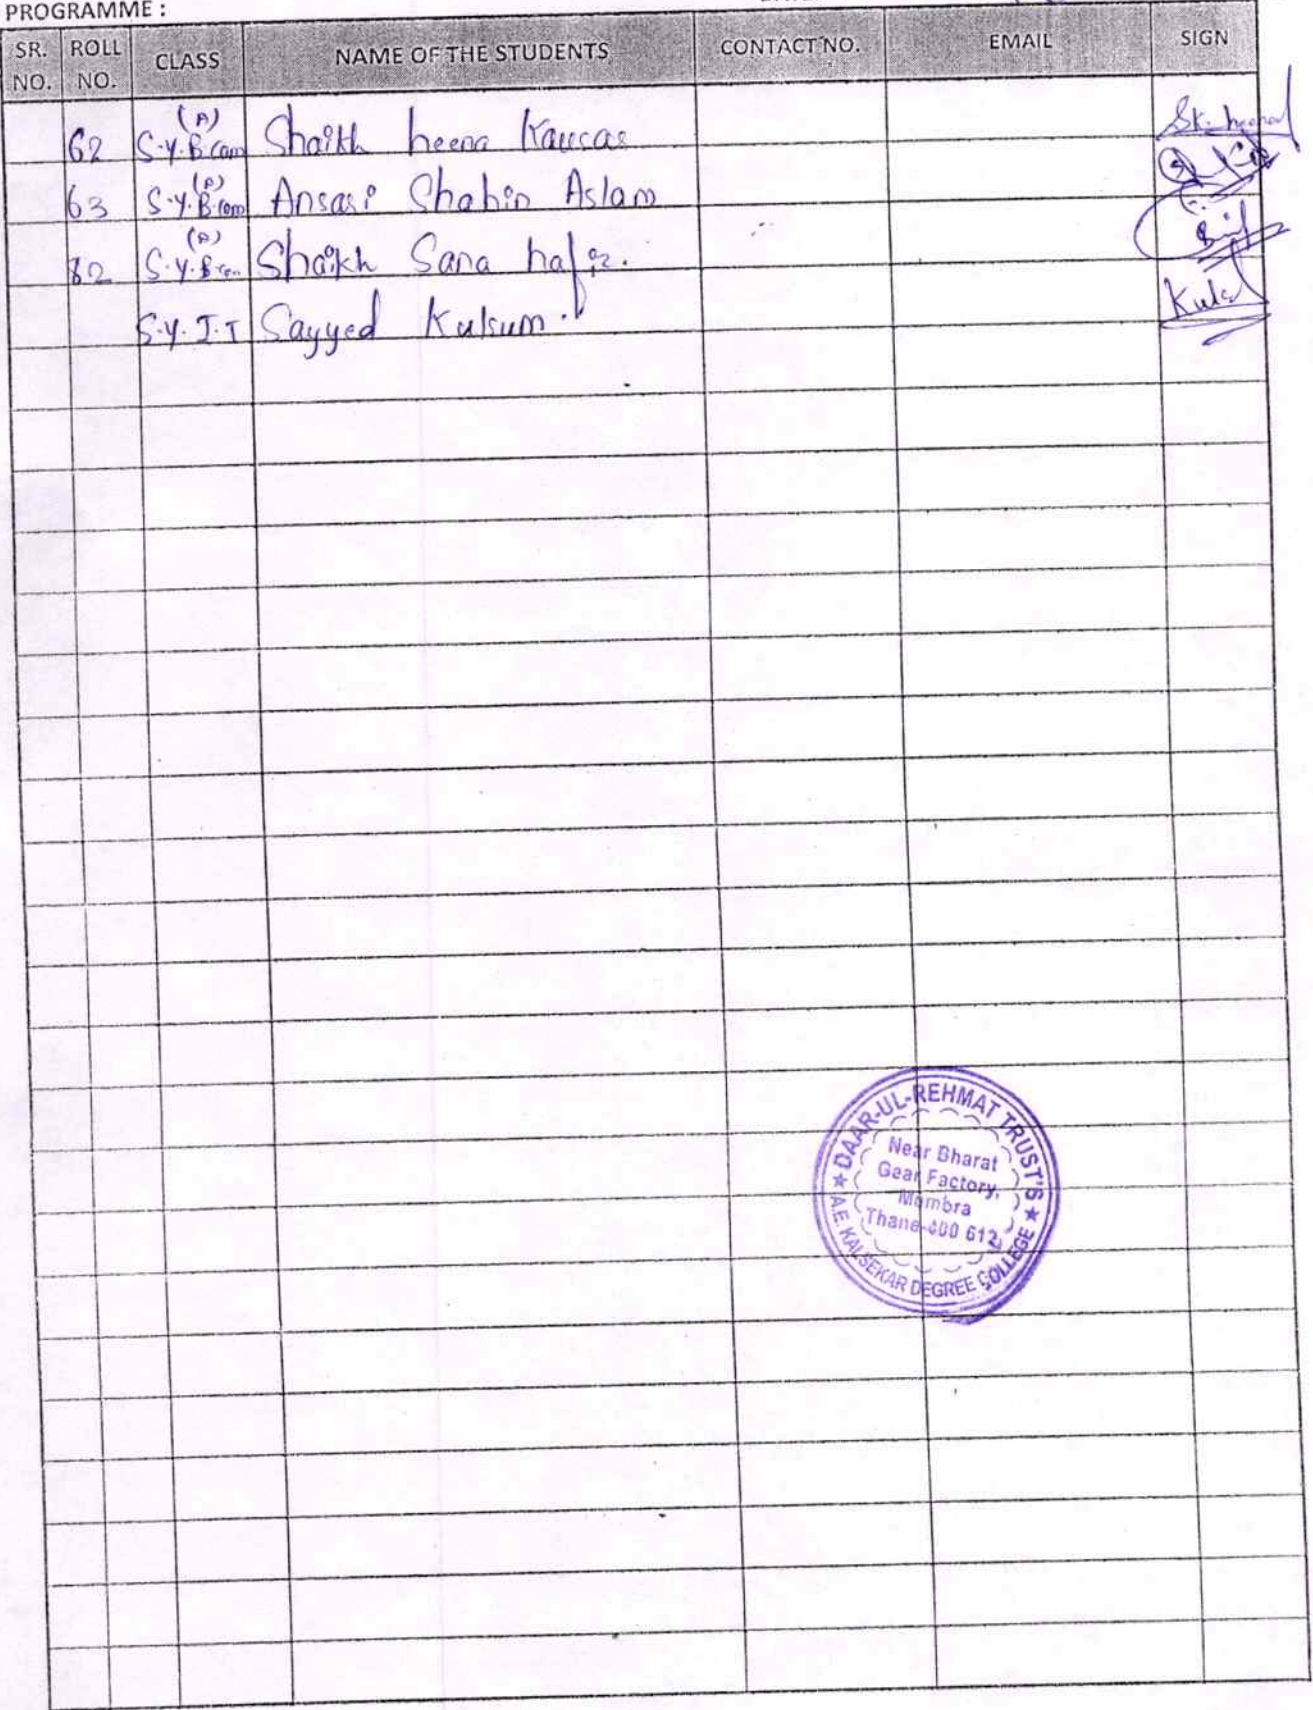 PROGRAMME :
SR. NO. ROLL NO. CLASS NAME OF THE STUDENTS CONTACT NO. EMAIL SIGN
62 S.Y.B.com (A) Shaikh heena Kausar Sk. heena
63 S.Y.B.com (A) Ansari Shahin Aslam
82 S.Y.B.com (A) Shaikh Sana hafiz.
S.Y.I.T Sayyed Kulsum.
★ DAAR-UL-REHMAT TRUST'S ★
A.E. KALSEKAR DEGREE COLLEGE
Near Bharat
Gear Factory,
Mumbra
Thane-400 612